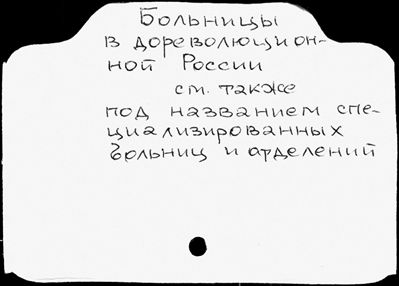 Больницы
в дореволюцион-
ной России
см. также
под названием спе-
циализированных
больниц и отделений